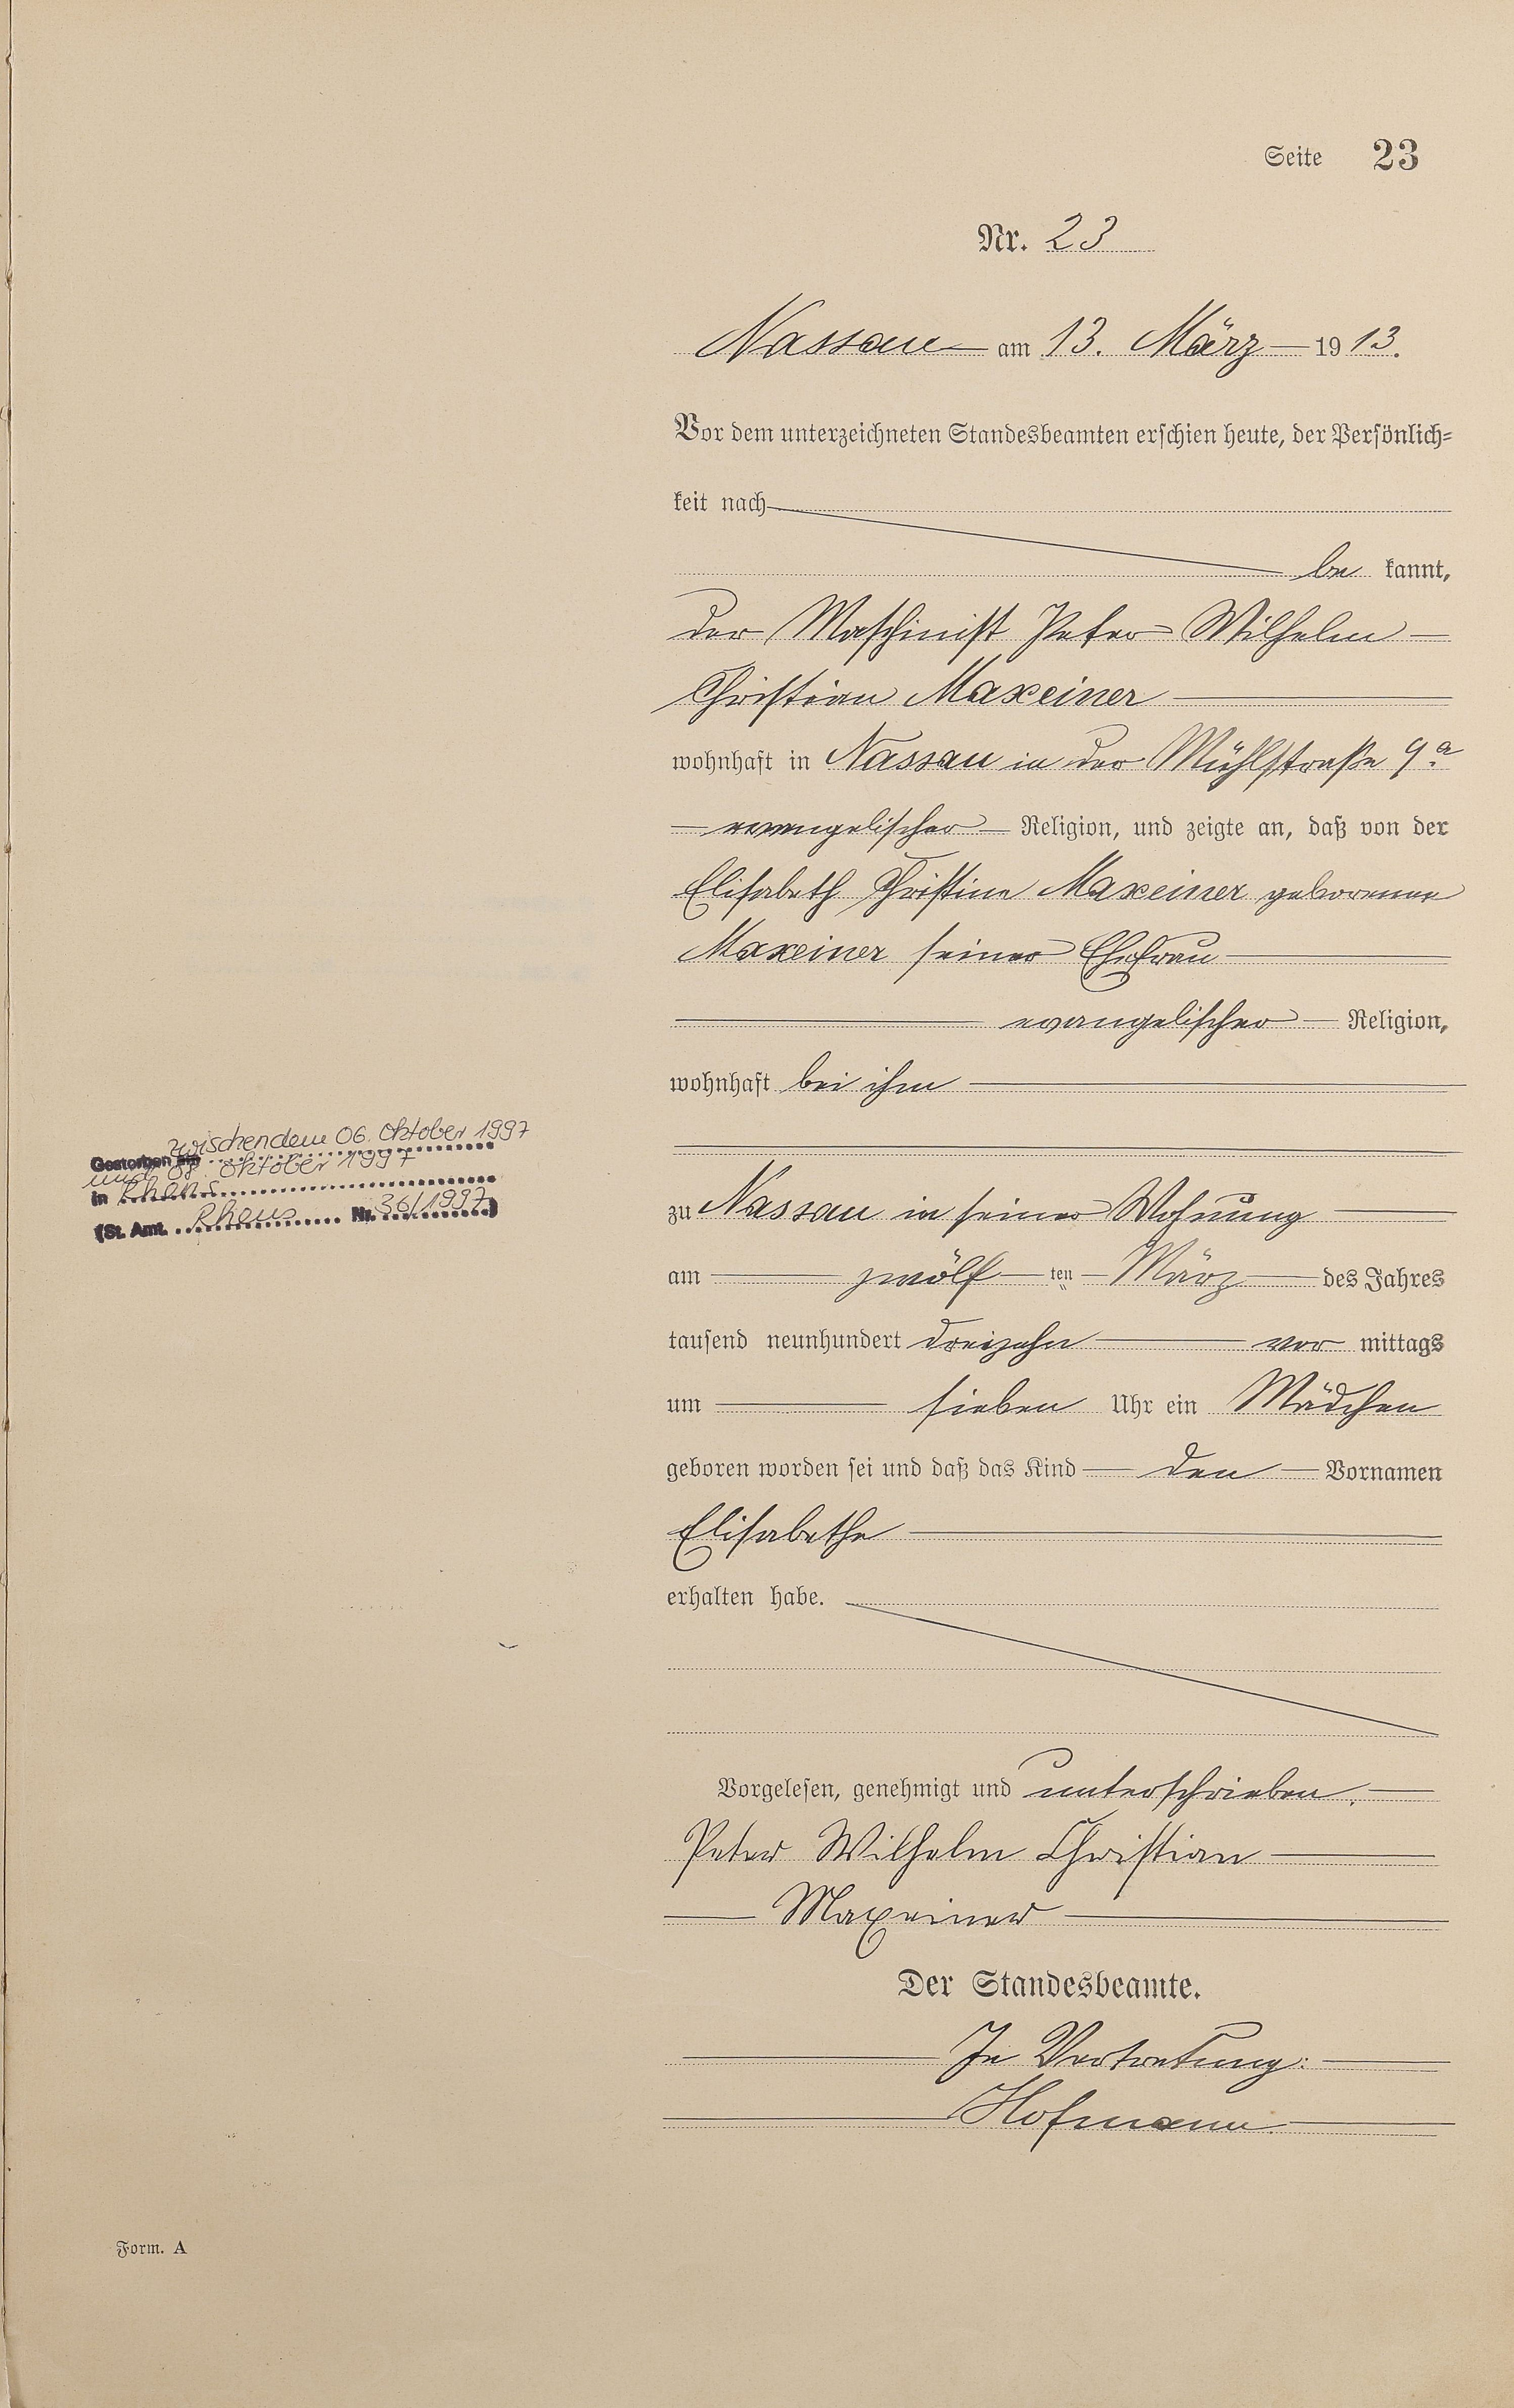 Seite 23
Nr. 23
Nassau am 13. März 1913.
Vor dem unterzeichneten Standesbeamten erschien heute, der Persönlich-
keit nach
be kannt,
der Maschinist Peter Wilhelm
Christian Maxeiner
wohnhaft in Nassau in der Mühlstraße 9a
evangelischer Religion, und zeigte an, daß von der
Elisabeth Christine Maxeiner geborenen
Maxeiner seiner Ehefrau
evangelischer Religion,
wohnhaft bei ihm
zwischen dem 06. Oktober 1997
Gestorben am
und 08. Oktober 1997
in Rhens
(St. Amt. Rhens Nr. 36/1997)
zu Nassau in seiner Wohnung
am zwölf ten März des Jahres
tausend neunhundert dreizehn vor mittags
um sieben Uhr ein Mädchen
geboren worden sei und daß das Kind den Vornamen
Elisabethe
erhalten habe.
Vorgelesen, genehmigt und unterschrieben.
Peter Wilhelm Christian
Maxeiner
Der Standesbeamte.
In Vertretung:
Hofmann
Form. A